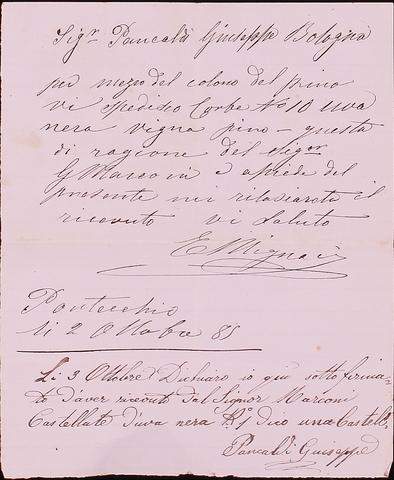 Sigr Pancaldi Giuseppe Bologna
per mezzo del colono del pino
vi spedisco Corbe No 10 uva
nera vigna pino – questa
di ragione del Sigor
G Marconi e apiede del
presente mi rilasiarete il
ricevuto vi saluto
E Mignani
Pontecchio
li 2 Ottobre 85
Li 3 Ottobre Dichiaro io qui sotto firma
to d'aver riceuto dal Signor Marconi
Castellate d'uva nera No 1 dico una Castell.
Pancaldi Giuseppe